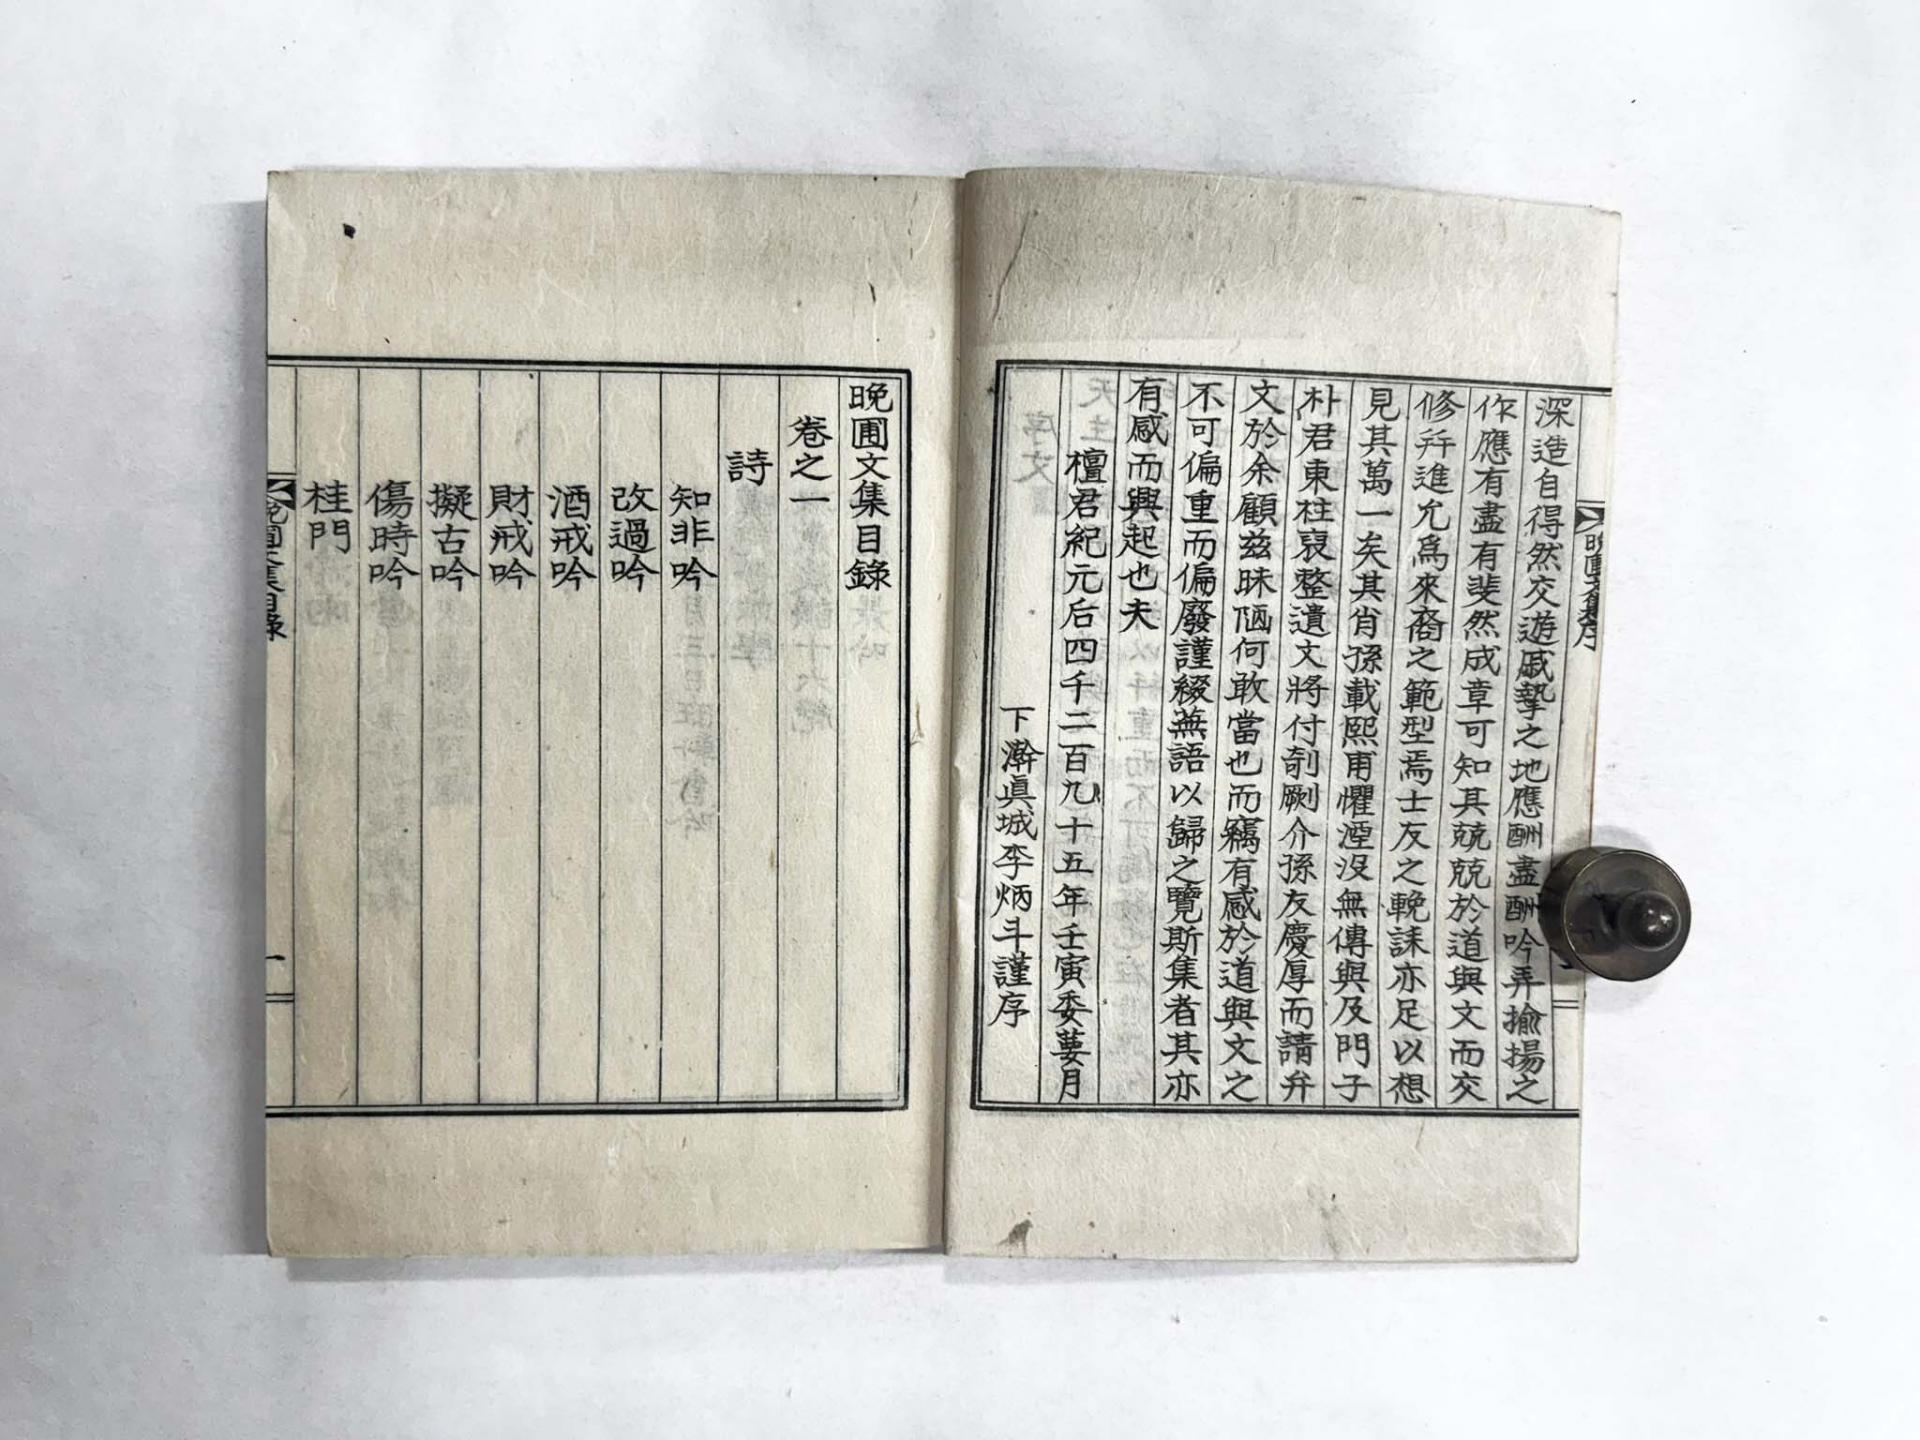 深造自得然交遊戚摯之地應酬盡酬吟弄揄揚之
作應有盡有斐然成章可知其兢兢於道與文而交
修幷進允爲來裔之範型焉士友之輓誄亦足以想
見其萬一矣其肖孫載熙甫懼湮沒無傳與及門子
朴君東柱裒整遺文將付剞劂介孫友慶厚而請弁
文於余顧玆昧陋何敢當也而竊有感於道與文之
不可偏重而偏廢謹綴蕪語以歸之覽斯集者其亦
有感而興起也夫
檀君紀元后四千二百九十五年壬寅委蔞月
下澣眞城李炳斗謹序
晚圃文集序
晚圃文集目錄
卷之一
詩
知非吟
改過吟
酒戒吟
財戒吟
擬古吟
傷時吟
桂門
晚圃文集目錄
一